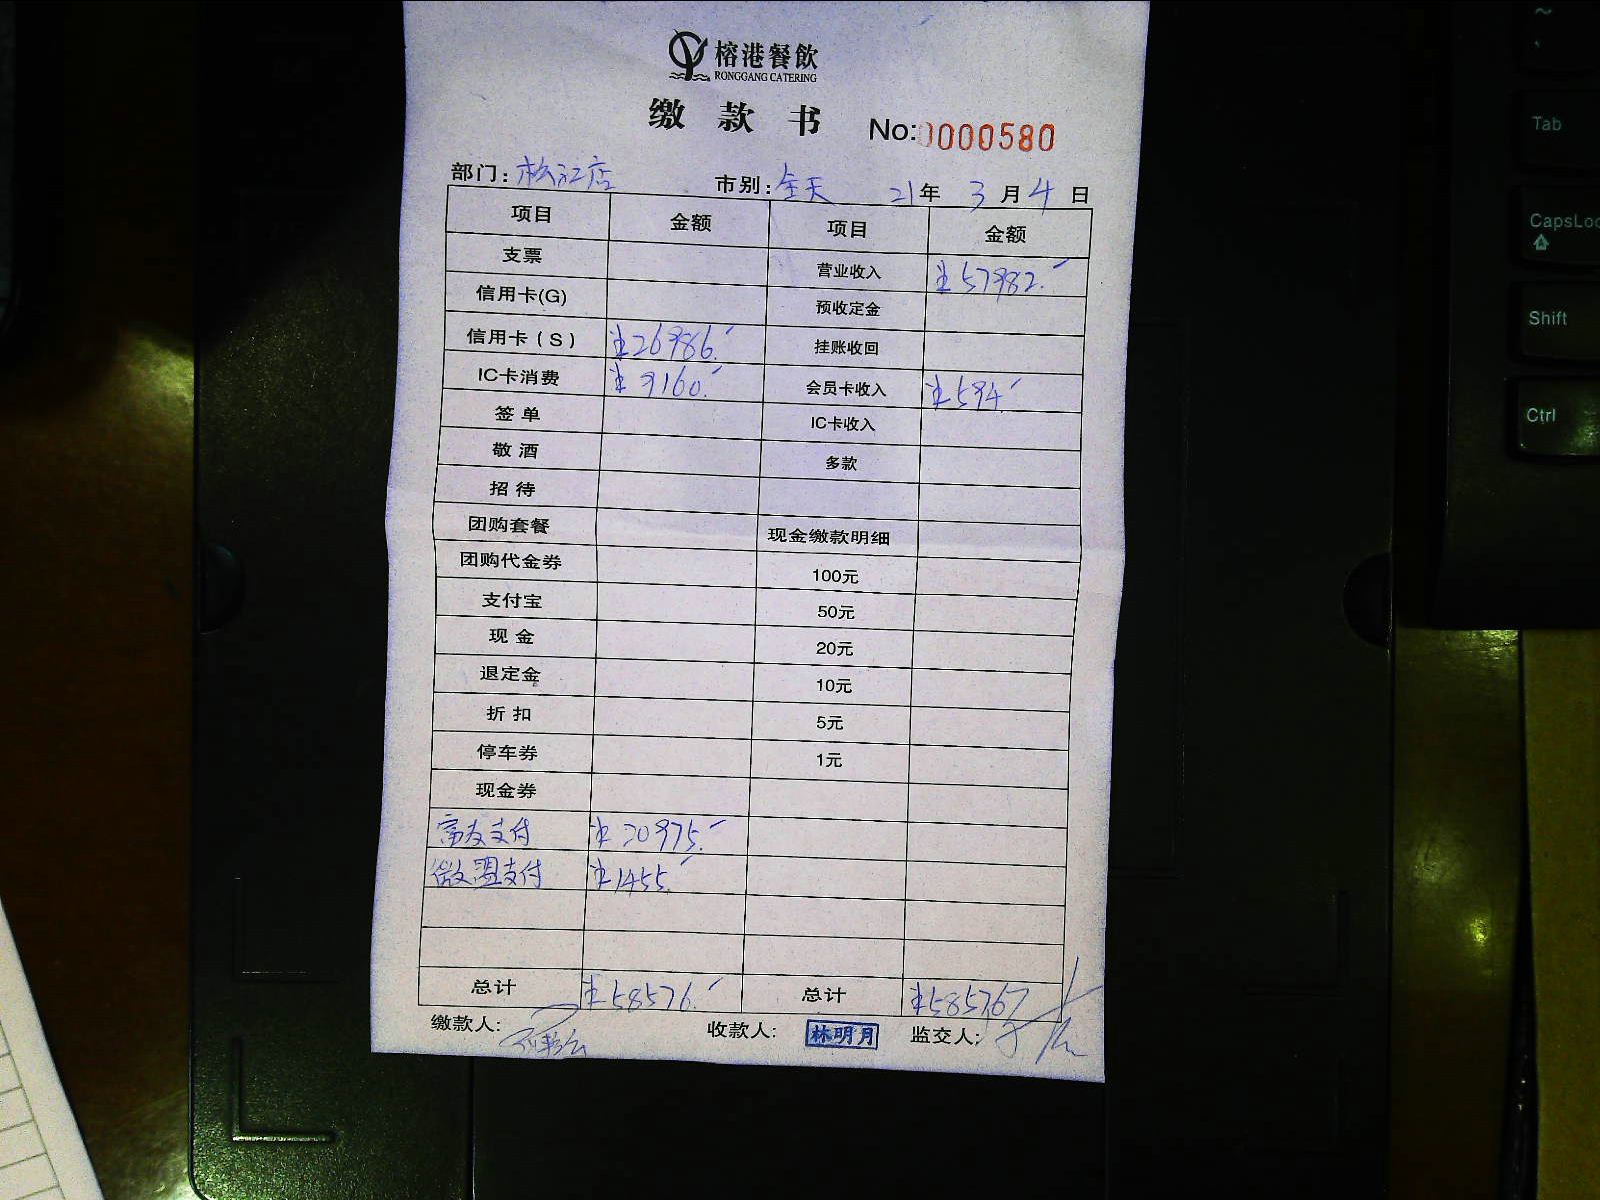 榕港餐飲
RONGGANG CATERING
缴款书 No:0000580
部门:松江店 市别:全天 21年 3月4日
项目 金额 项目 金额
支票 营业收入 ¥57982.-
信用卡(G) 预收定金
信用卡(S) ¥26986.- 挂账收回
IC卡消费 ¥9160.- 会员卡收入 ¥594.-
签单 IC卡收入
敬酒 多款
招待
团购套餐 现金缴款明细
团购代金券 100元
支付宝 50元
现金 20元
退定金 10元
折扣 5元
停车券 1元
现金券
富友支付 ¥20975.-
微盟支付 ¥1455.-
总计 ¥58576.- 总计 ¥58576.-
缴款人: 收款人: 林明月 监交人:
Tab
CapsLoc
Shift
Ctrl